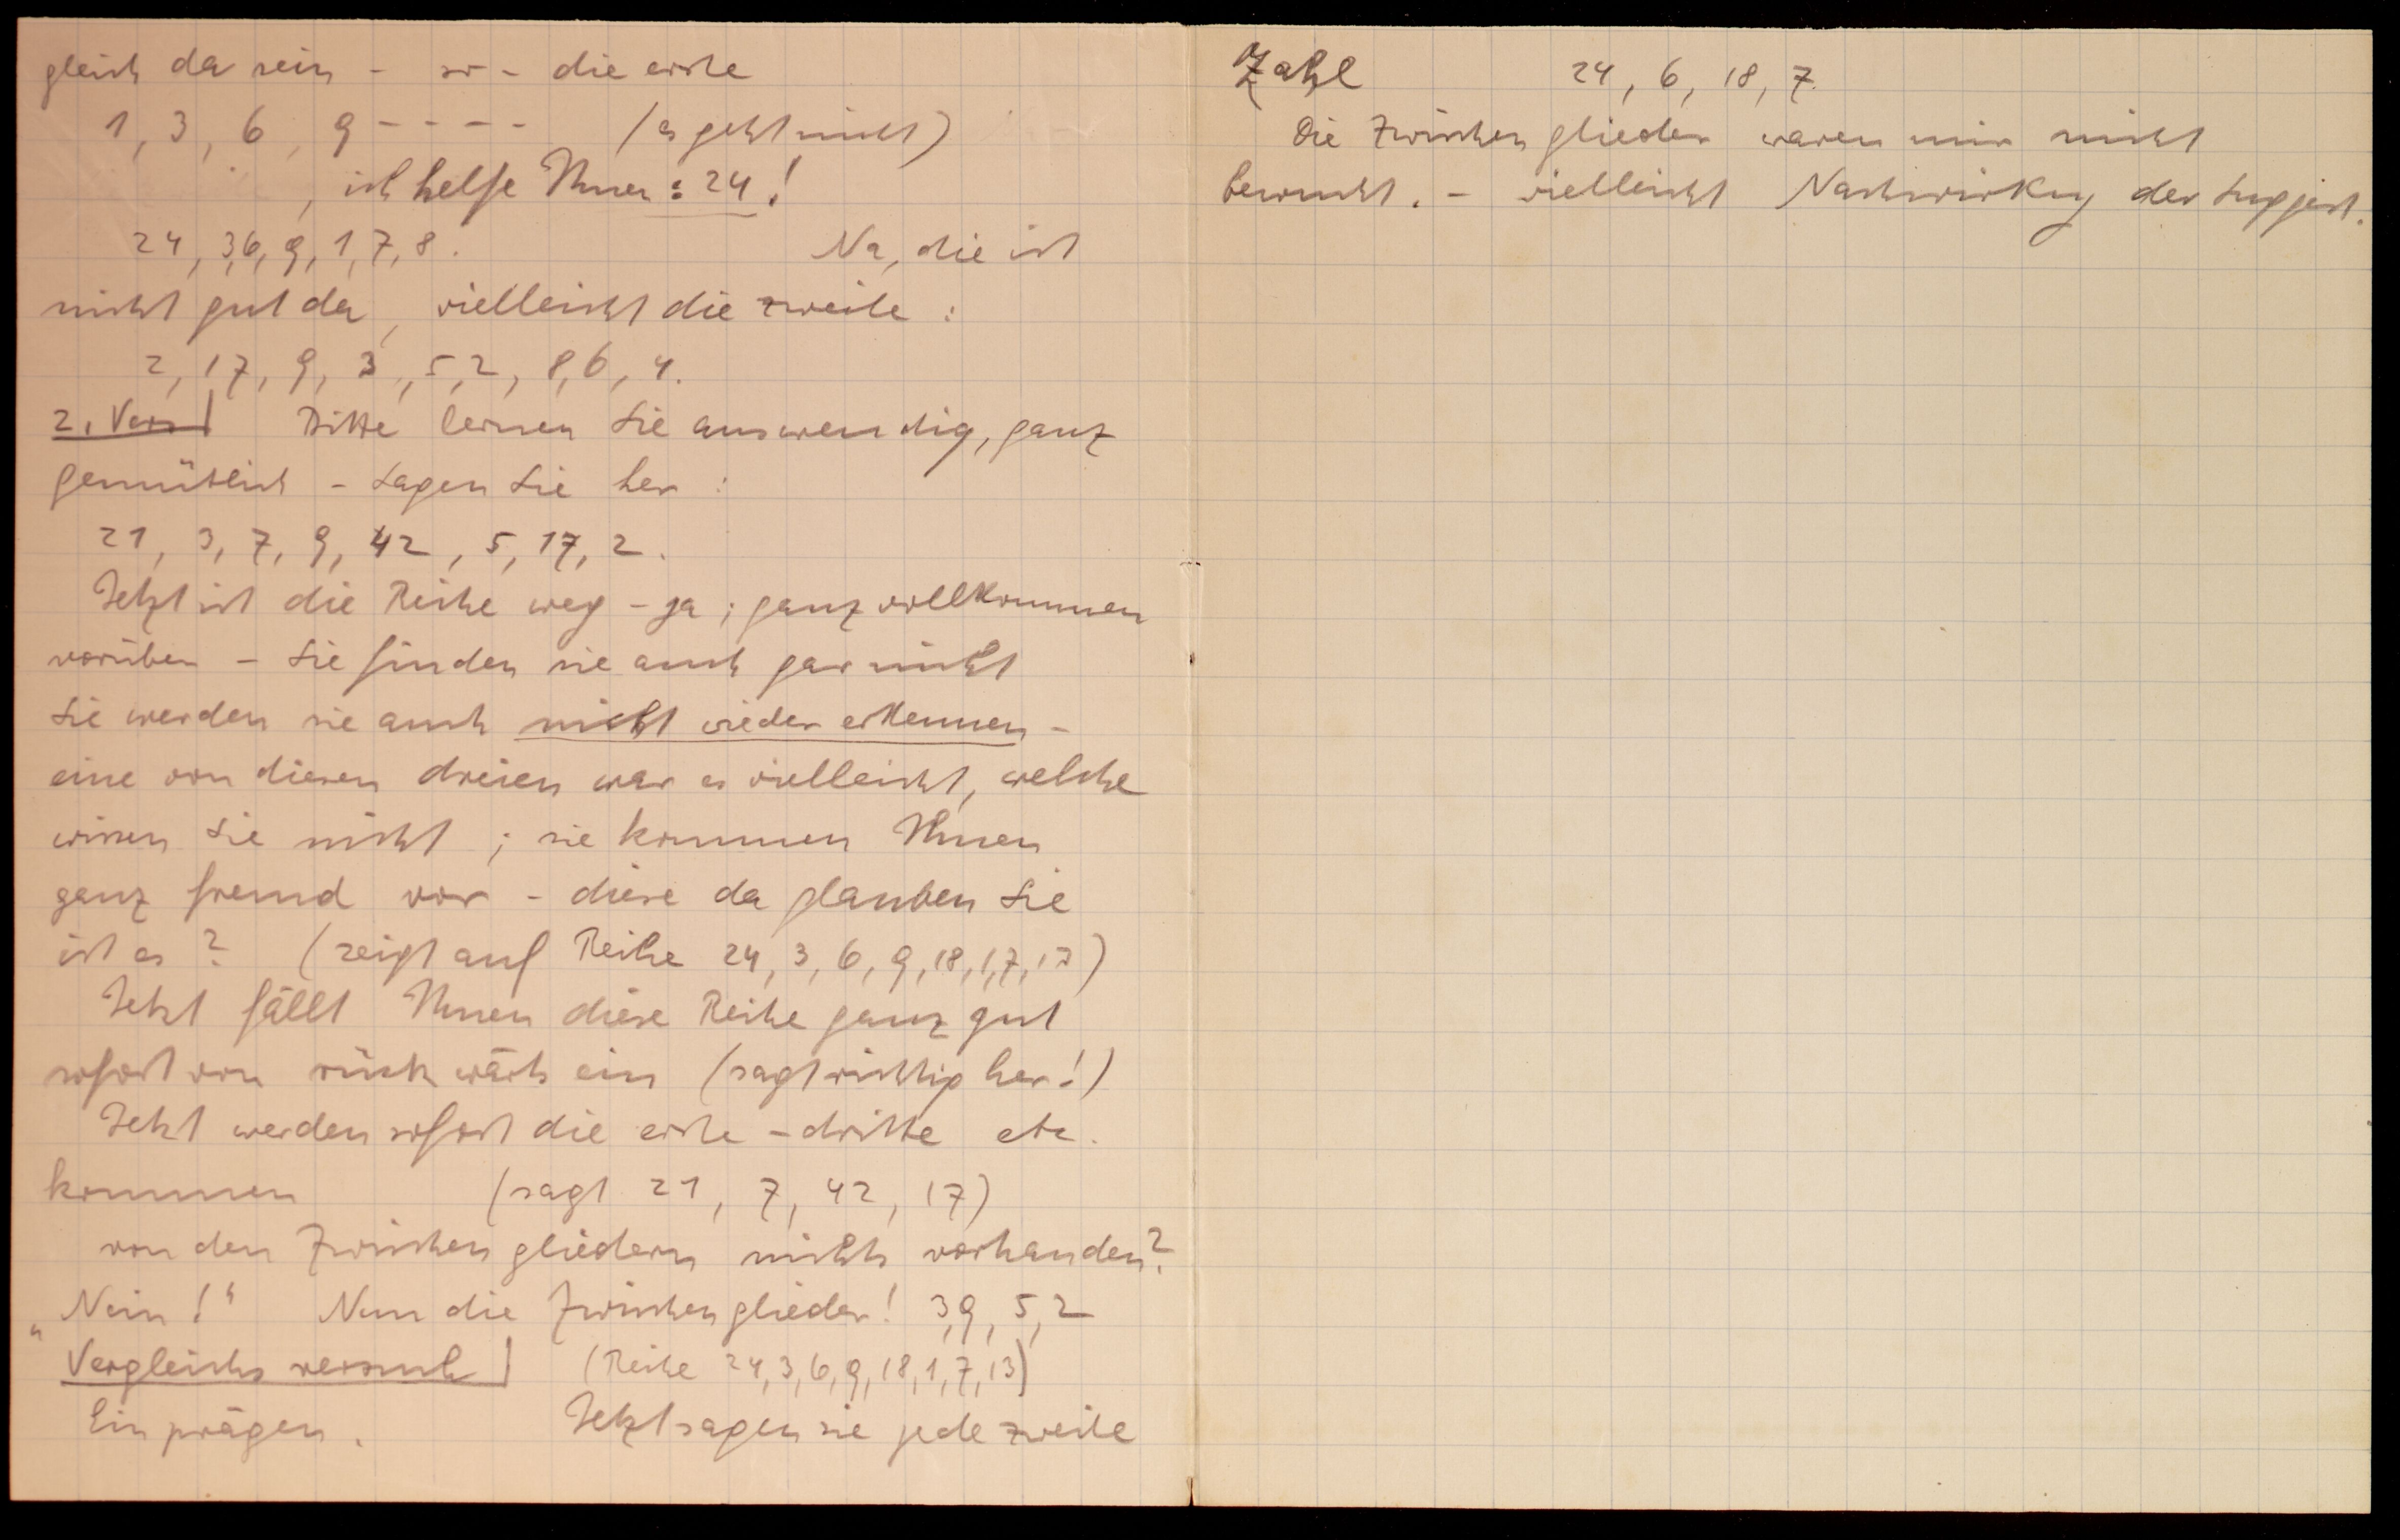 gleich da sein - so - die erste
1, 3, 6, 9 - - - - (es geht nicht)
, ich helfe Ihnen : 24!
24, 36, 9, 1, 7, 8. Na, die ist
nicht gut da, vielleicht die zweite :
2, 17, 9, 3, 5, 2, 8, 6, 4.
2. Vers| Bitte lernen Sie auswendig, ganz
gemütlich - sagen Sie her :
21, 3, 7, 9, 42, 5, 17, 2.
Jetzt ist die Reihe weg - ja ; ganz vollkommen
vorüber - Sie finden sie auch gar nicht
Sie werden sie auch nicht wieder erkennen -
eine von diesen dreien war es vielleicht, welche
wissen Sie nicht ; sie kommen Ihnen
ganz fremd vor - diese da glauben Sie
ist es ? (zeigt auf Reihe 24, 3, 6, 9, 18, 1, 7, 13)
Jetzt fällt Ihnen diese Reihe ganz gut
sofort von rückwärts ein (sagt richtig her!)
Jetzt werden sofort die erste - dritte etc.
kommen (sagt 21, 7, 42, 17)
von den Zwischengliedern nichts vorhanden?
„Nein!“ Nun die Zwischenglieder! 3, 9, 5, 2
Vergleichsversuch| (Reihe 24, 3, 6, 9, 18, 1, 7, 13)
Einprägen. Jetzt sagen sie jede zweite
Zahl 24, 6, 18, 7.
Die Zwischenglieder waren mir nicht
bewusst. - vielleicht Nachwirkung der Suggest.